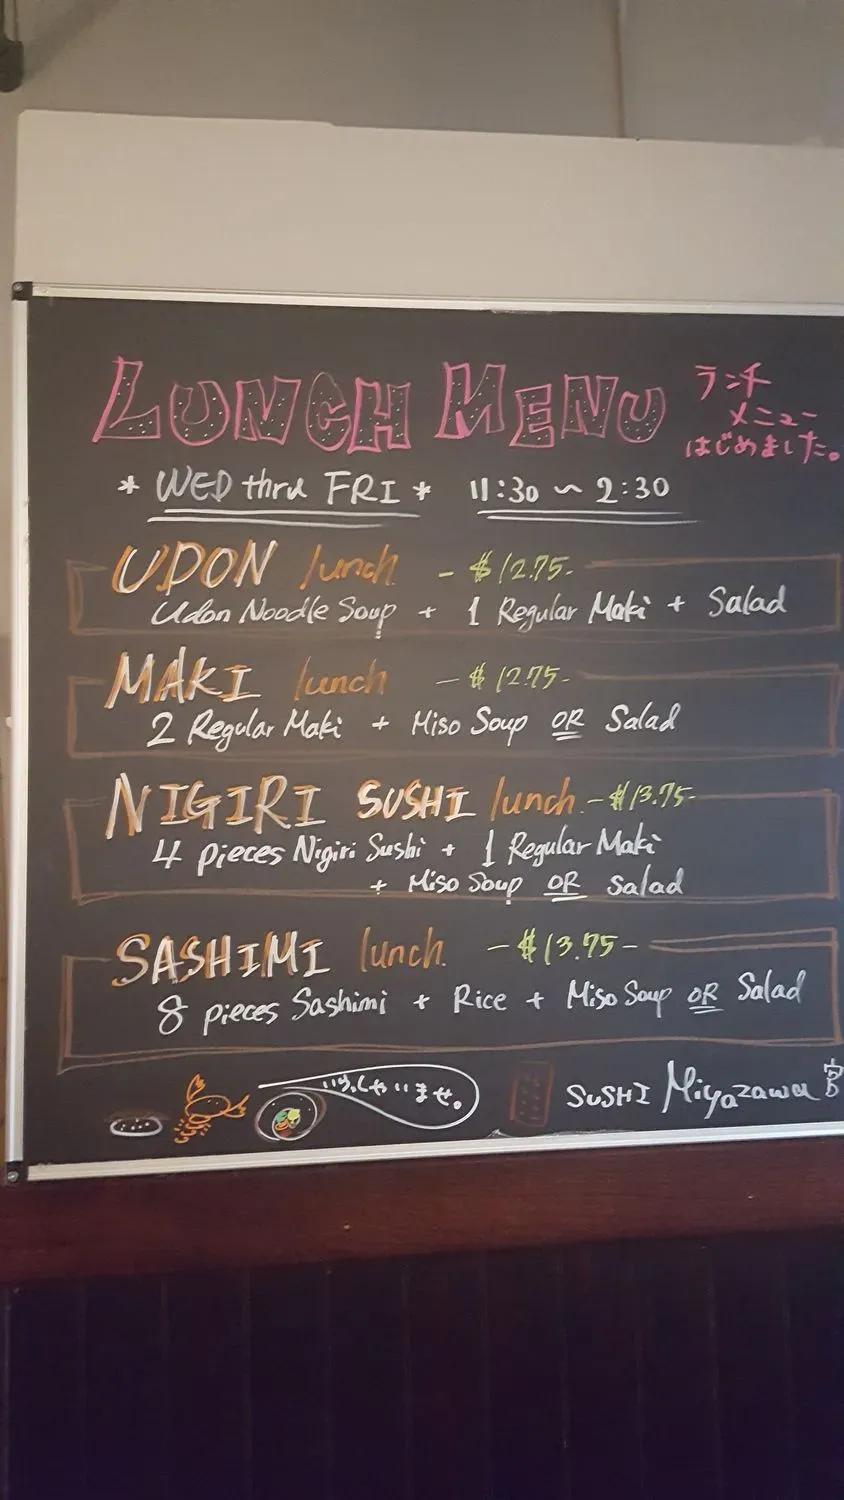 LUNCH MENU
ランチ
メニュー
はじめました。
* WED thru FRI * 11:30 ~ 2:30
UDON lunch - $12.75-
Udon Noodle Soup + 1 Regular Maki + Salad
MAKI lunch - $12.75-
2 Regular Maki + Miso Soup OR Salad
NIGIRI SUSHI lunch - $13.75-
4 pieces Nigiri Sushi + 1 Regular Maki
+ Miso Soup OR Salad
SASHIMI lunch - $13.75-
8 pieces Sashimi + Rice + Miso Soup OR Salad
いらっしゃいませ。
SUSHI Miyazawa 宮